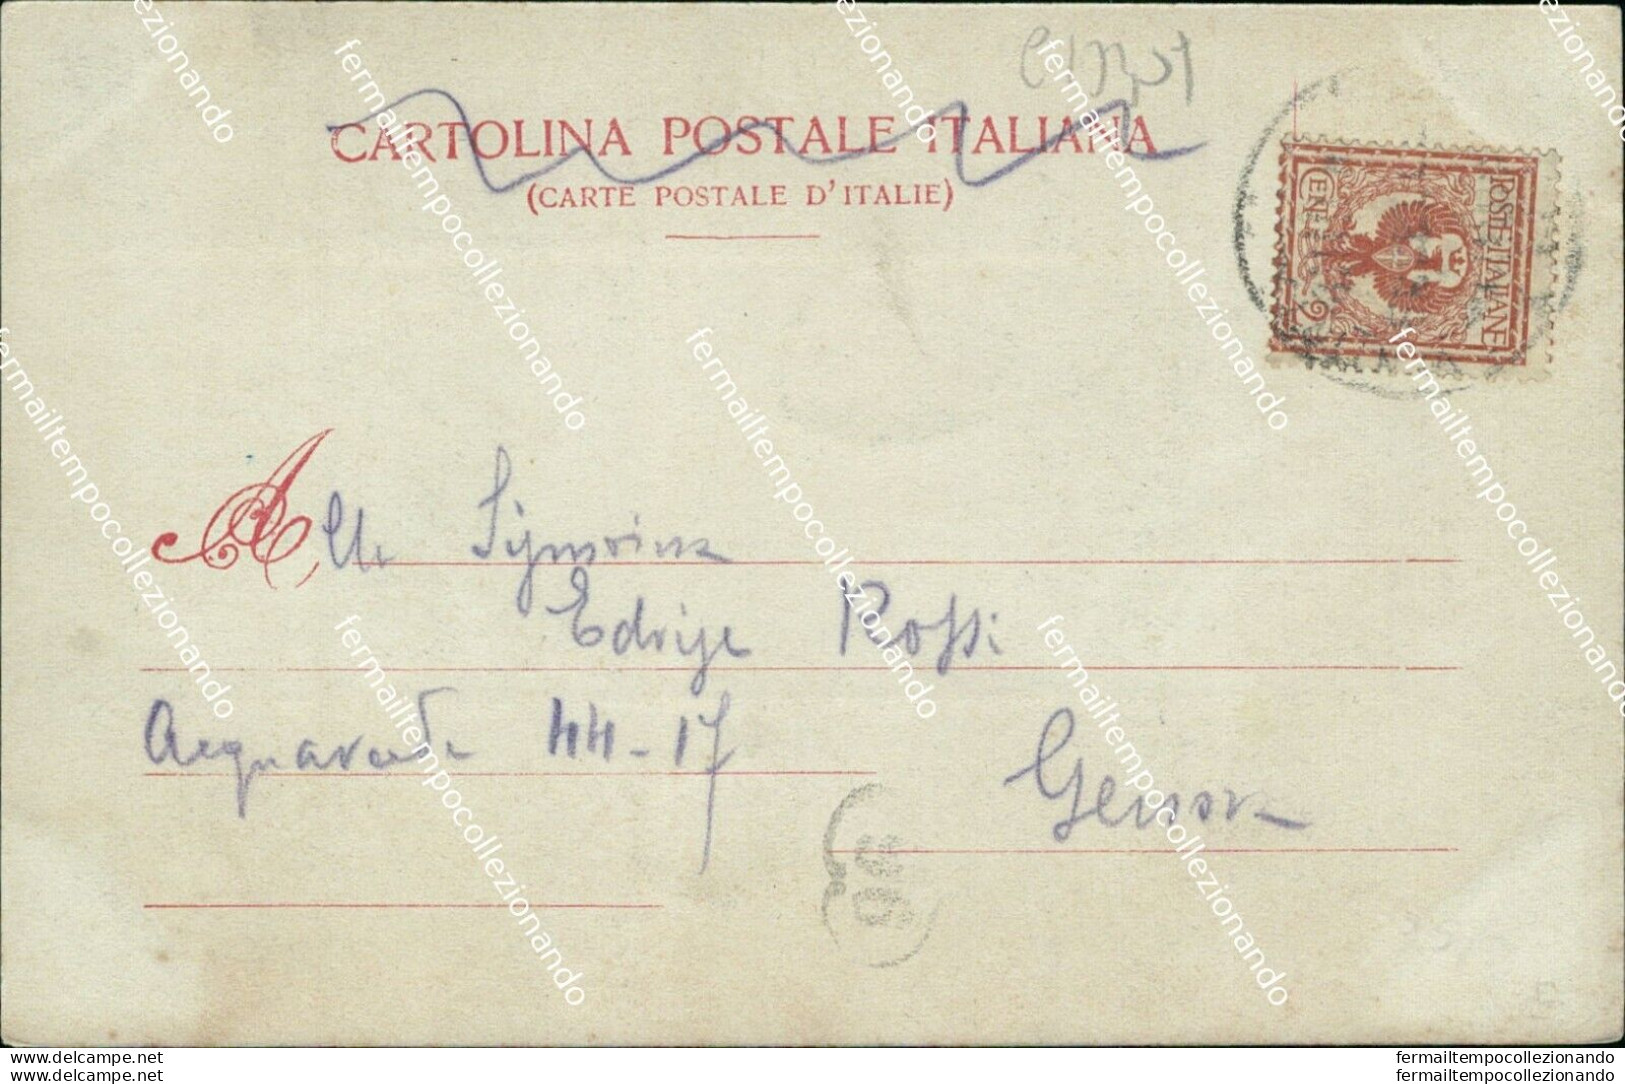 CARTOLINA POSTALE ITALIANA
(CARTE POSTALE D'ITALIE)
POSTE ITALIANE
CENT. 2
Alla Signorina
Edvige Rossi
Acquaverde 44-17
Genova
fermailtempocollezionando
www.delcampe.net
www.delcampe.net
fermailtempocollezionando
fermailtempocollezionando